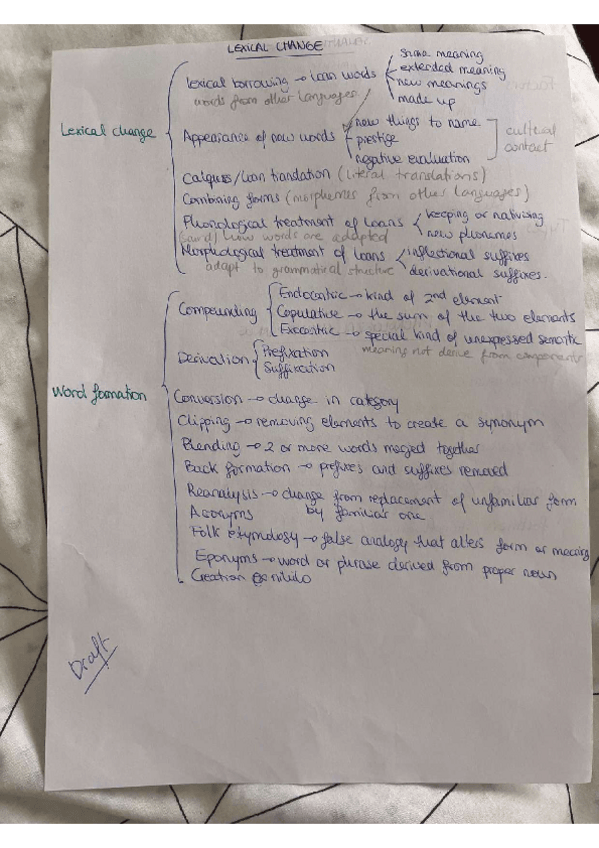 LEXICAL CHANGE
Lexical change
lexical borrowing → loan words
same meaning
extended meaning
new meanings
made up
words from other languages
Appearance of new words
new things to name
prestige
negative evaluation
cultural contact
Calques/loan translation (literal translations)
Combining forms (morphemes from other languages)
Phonological treatment of loans
keeping or nativizing
new phonemes
(sound) how words are adapted
Morphological treatment of loans
inflectional suffixes
derivational suffixes.
adapt to grammatical structure
Word formation
Compounding
Endocentric → kind of 2nd element
Copulative → the sum of the two elements
Exocentric → special kind of unexpressed semantic
meaning not derive from components
Derivation
Prefixation
Suffixation
Conversion → change in category
Clipping → removing elements to create a synonym
Blending → 2 or more words merged together
Back formation → prefixes and suffixes removed
Reanalysis → change from replacement of unfamiliar form
by familiar one
Acronyms
Folk etymology → false analogy that alters form or meaning
Eponyms → word or phrase derived from proper noun
Creation ex nihilo
Draft